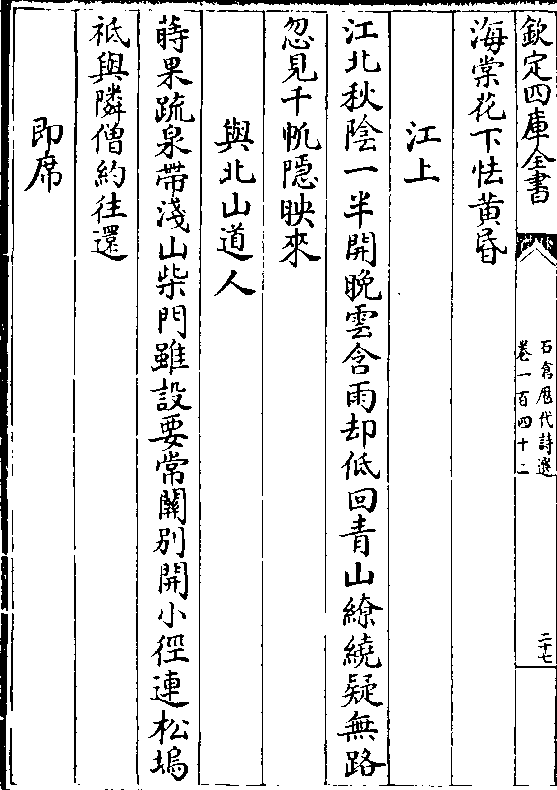 欽定四庫全書
石倉歴代詩選
卷一百四十二
二十七
海棠花下怯黄昏
江上
江北秋陰一半開晩雲含雨却低回青山繚繞疑無路
忽見千帆隱映來
與北山道人
蒔果疏泉帶淺山柴門雖設要常關别開小徑連松塢
祗與隣僧約往還
即席